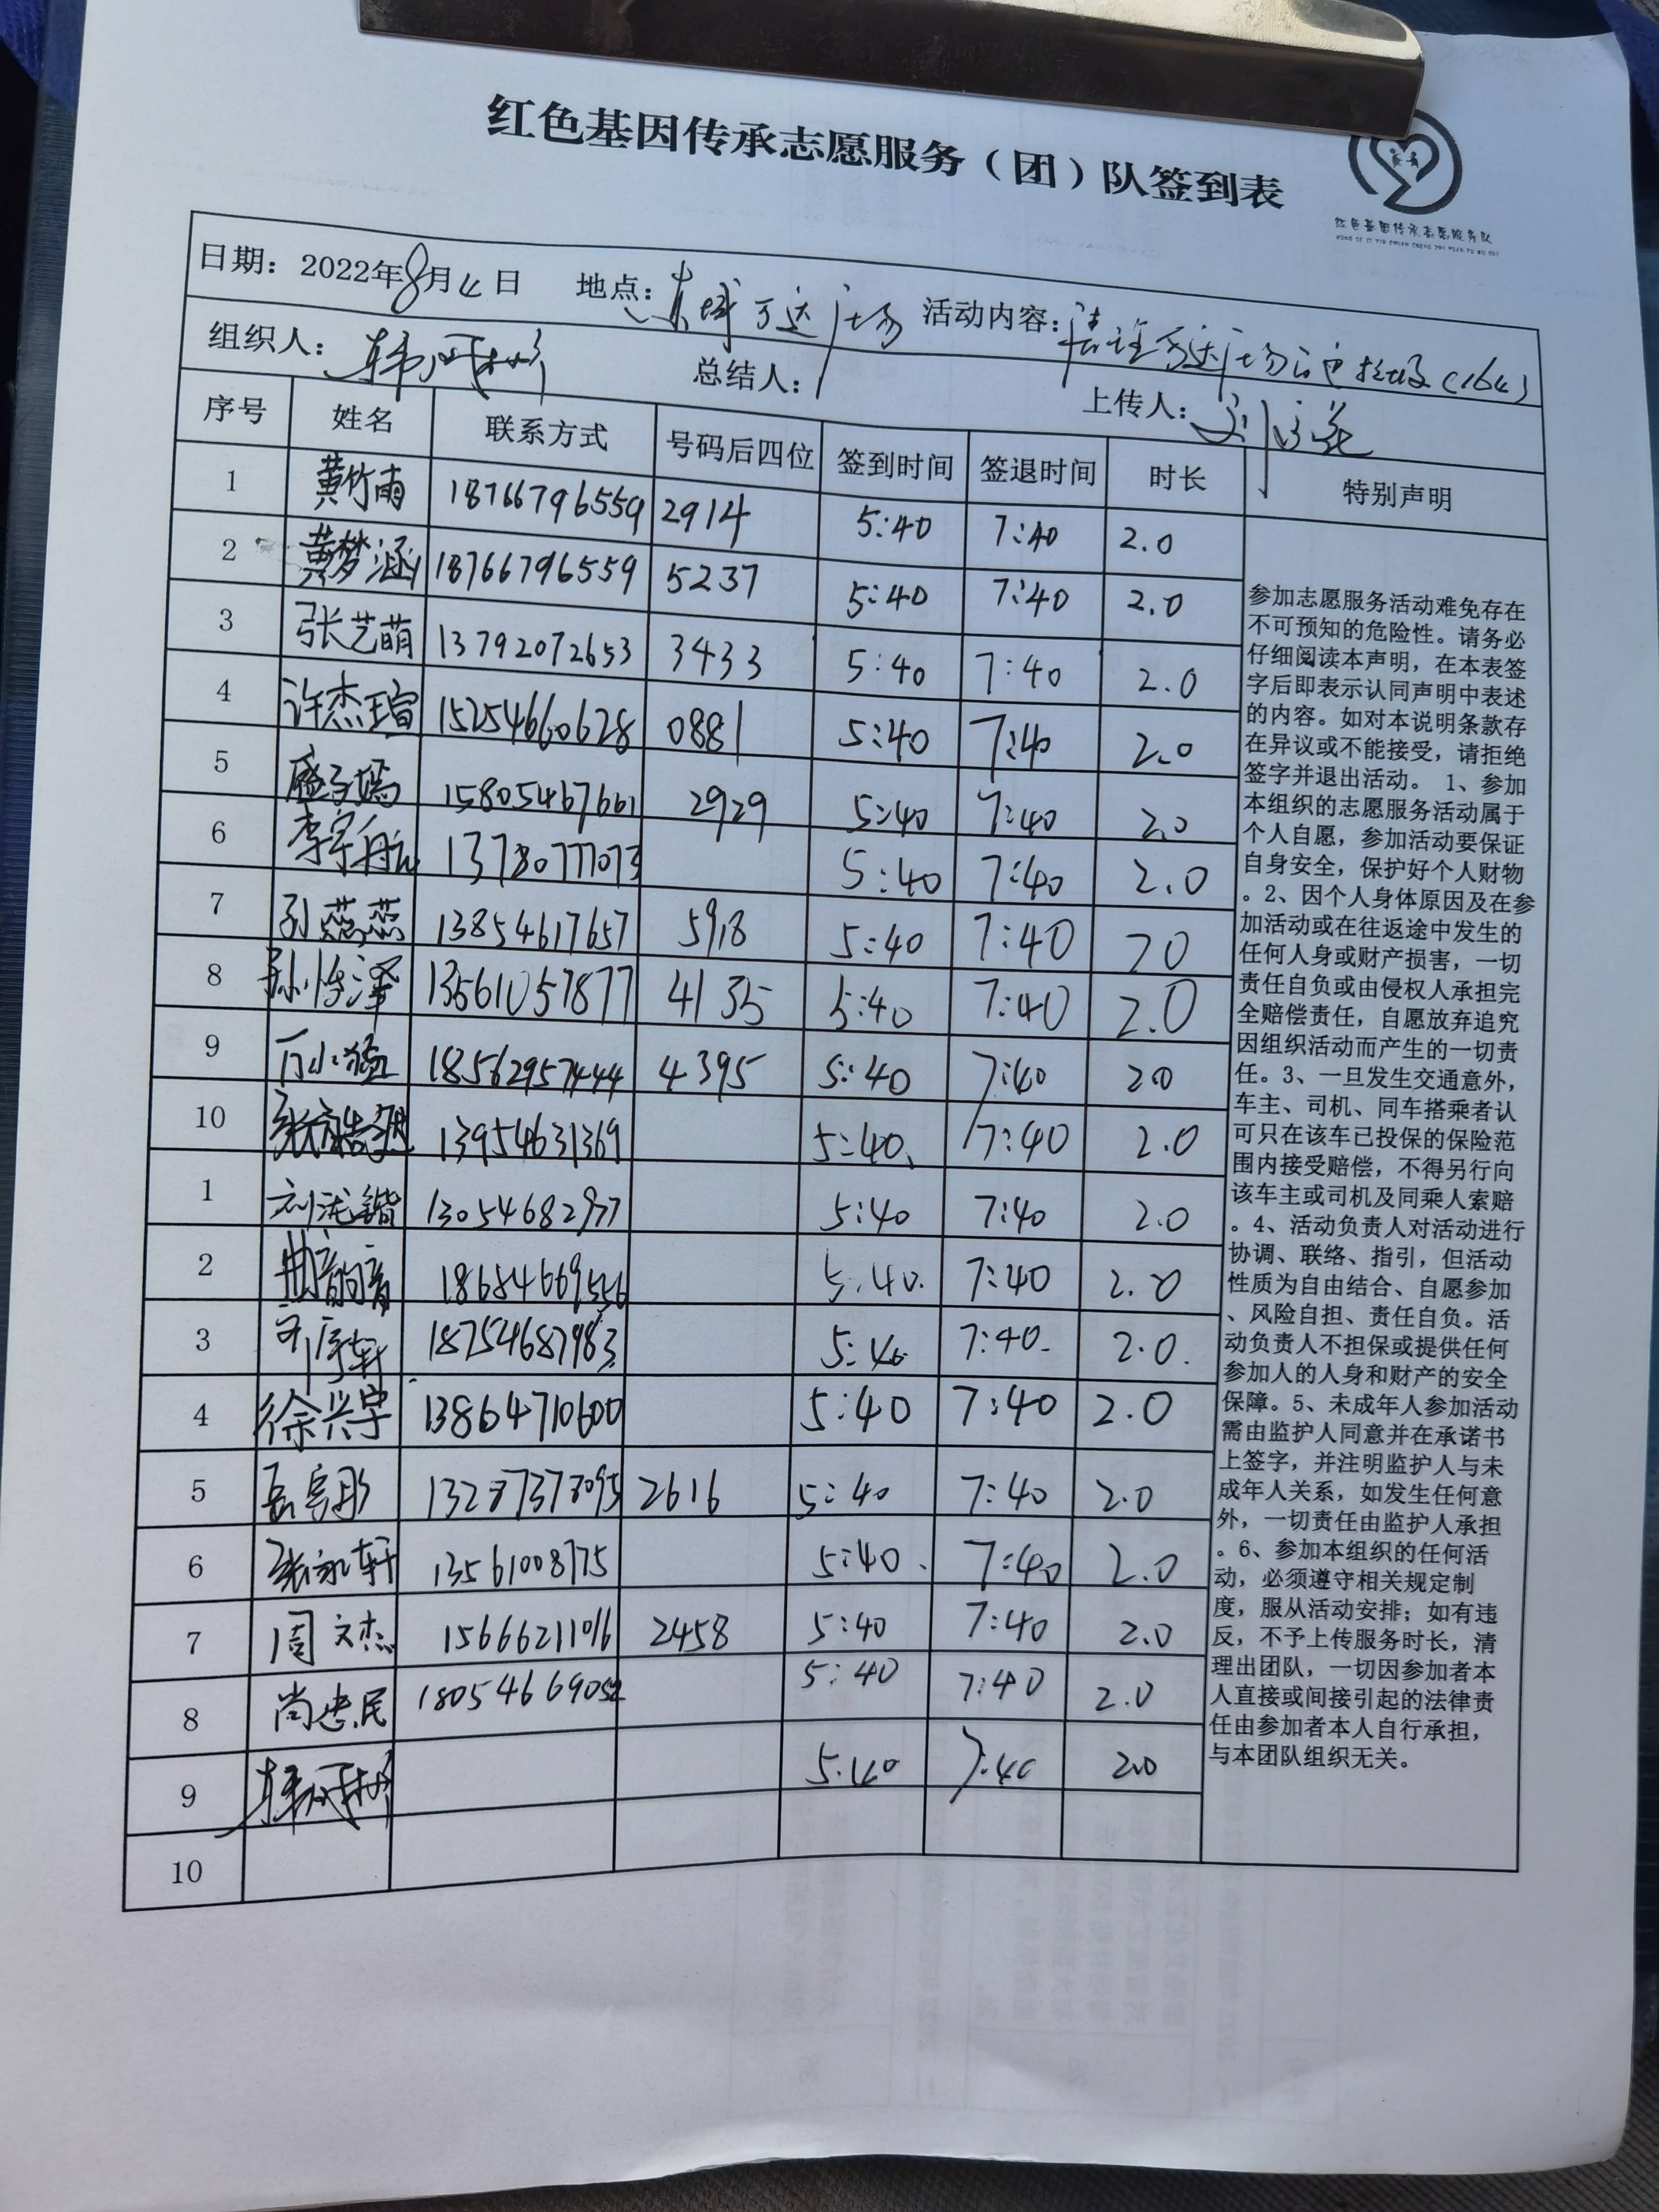 红色基因传承志愿服务（团）队签到表
红色基因传承志愿服务队
日期：2022年8月4日 地点：东城万达广场 活动内容：清理万达广场白色垃圾（164）
组织人： 总结人： 上传人：
序号 姓名 联系方式 号码后四位 签到时间 签退时间 时长 特别声明
1 黄竹雨 18766796559 2914 5:40 7:40 2.0
2 黄梦涵 18766796559 5237 5:40 7:40 2.0
3 张艺萌 13792072653 3433 5:40 7:40 2.0
4 许杰瑄 15254660628 0881 5:40 7:40 2.0
5 盛子嫣 15805467661 2929 5:40 7:40 2.0
6 李宇航 13780777073 5:40 7:40 2.0
7 孙蕊蕊 13854617657 5918 5:40 7:40 20
8 13561057877 4135 5:40 7:40 2.0
9 18562957444 4395 5:40 7:40 20
10 13954631369 5:40 7:40 2.0
1 13054682977 5:40 7:40 2.0
2 曲韵音 18684669556 5:40 7:40 2.0
3 18754687983 5:40 7:40 2.0
4 徐兴宇 13864710600 5:40 7:40 2.0
5 2616 5:40 7:40 2.0
6 张永轩 13561008775 5:40 7:40 2.0
7 周文杰 15666211016 2458 5:40 7:40 2.0
8 尚忠民 18054669052 5:40 7:40 2.0
9 5:40 7:40 2.0
10
参加志愿服务活动难免存在
不可预知的危险性。请务必
仔细阅读本声明，在本表签
字后即表示认同声明中表述
的内容。如对本说明条款存
在异议或不能接受，请拒绝
签字并退出活动。1、参加
本组织的志愿服务活动属于
个人自愿，参加活动要保证
自身安全，保护好个人财物
。2、因个人身体原因及在参
加活动或在往返途中发生的
任何人身或财产损害，一切
责任自负或由侵权人承担完
全赔偿责任，自愿放弃追究
因组织活动而产生的一切责
任。3、一旦发生交通意外，
车主、司机、同车搭乘者认
可只在该车已投保的保险范
围内接受赔偿，不得另行向
该车主或司机及同乘人索赔
。4、活动负责人对活动进行
协调、联络、指引，但活动
性质为自由结合、自愿参加
、风险自担、责任自负。活
动负责人不担保或提供任何
参加人的人身和财产的安全
保障。5、未成年人参加活动
需由监护人同意并在承诺书
上签字，并注明监护人与未
成年人关系，如发生任何意
外，一切责任由监护人承担
。6、参加本组织的任何活
动，必须遵守相关规定制
度，服从活动安排；如有违
反，不予上传服务时长，清
理出团队，一切因参加者本
人直接或间接引起的法律责
任由参加者本人自行承担，
与本团队组织无关。